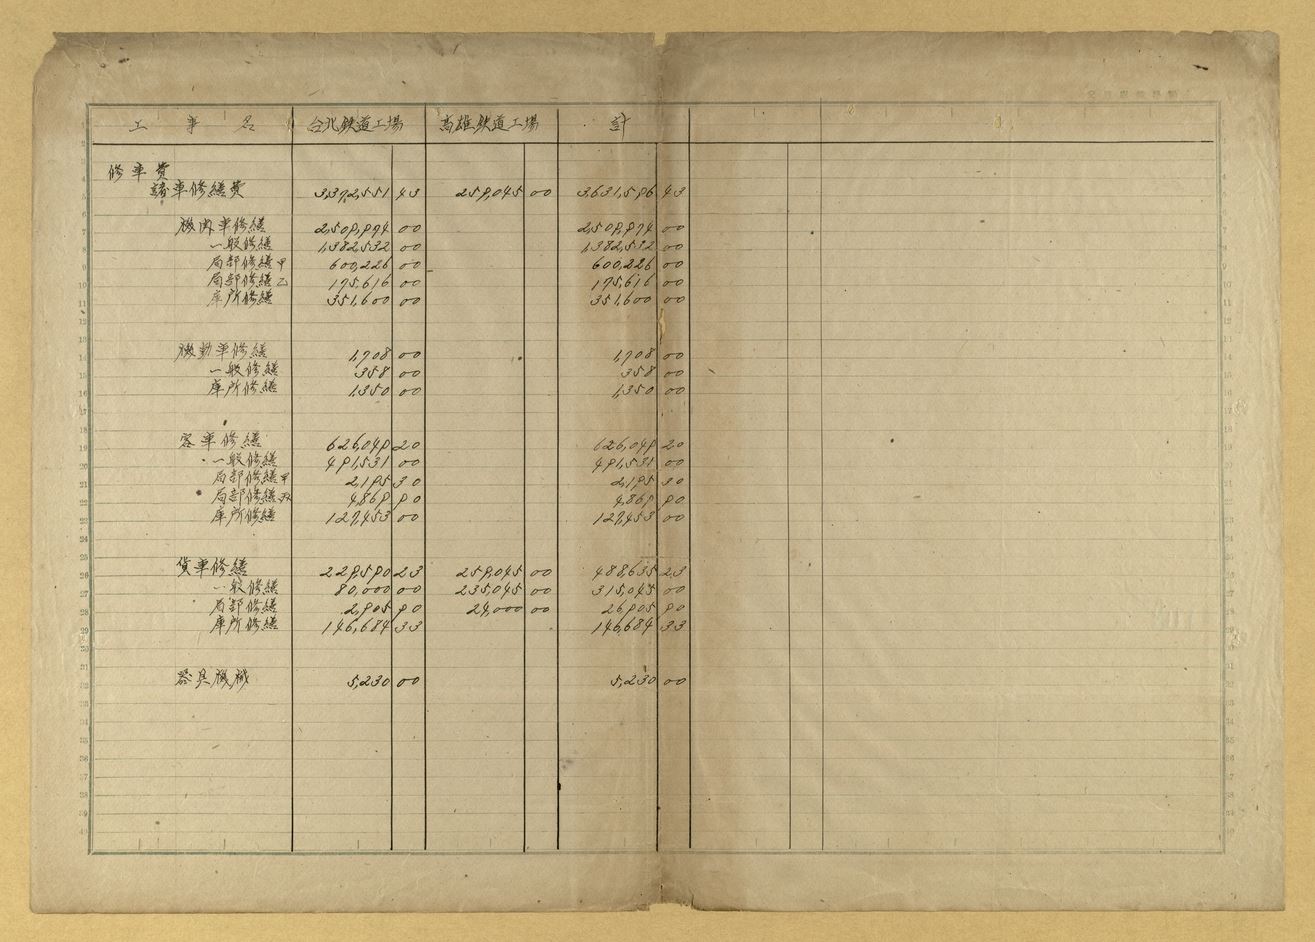 工 事 名 台北鉄道工場 高雄鉄道工場 計
修車費
諸車修繕費 3,372,551 43 259,045 00 3,631,596 43
機関車修繕 2,509,974 00 2,509,974 00
一般修繕 1,382,532 00 1,382,532 00
局部修繕甲 600,226 00 600,226 00
局部修繕乙 175,616 00 175,616 00
庫所修繕 351,600 00 351,600 00
機動車修繕 1,708 00 1,708 00
一般修繕 358 00 358 00
庫所修繕 1,350 00 1,350 00
客車修繕 626,049 20 626,049 20
一般修繕 491,531 00 491,531 00
局部修繕甲 2,195 30 2,195 30
局部修繕 4,869 90 4,869 90
庫所修繕 127,453 00 127,453 00
貨車修繕 229,590 23 259,045 00 488,635 23
一般修繕 80,000 00 235,045 00 315,045 00
局部修繕 2,905 90 24,000 00 26,905 90
庫所修繕 146,684 33 146,684 33
器具機械 5,230 00 5,230 00